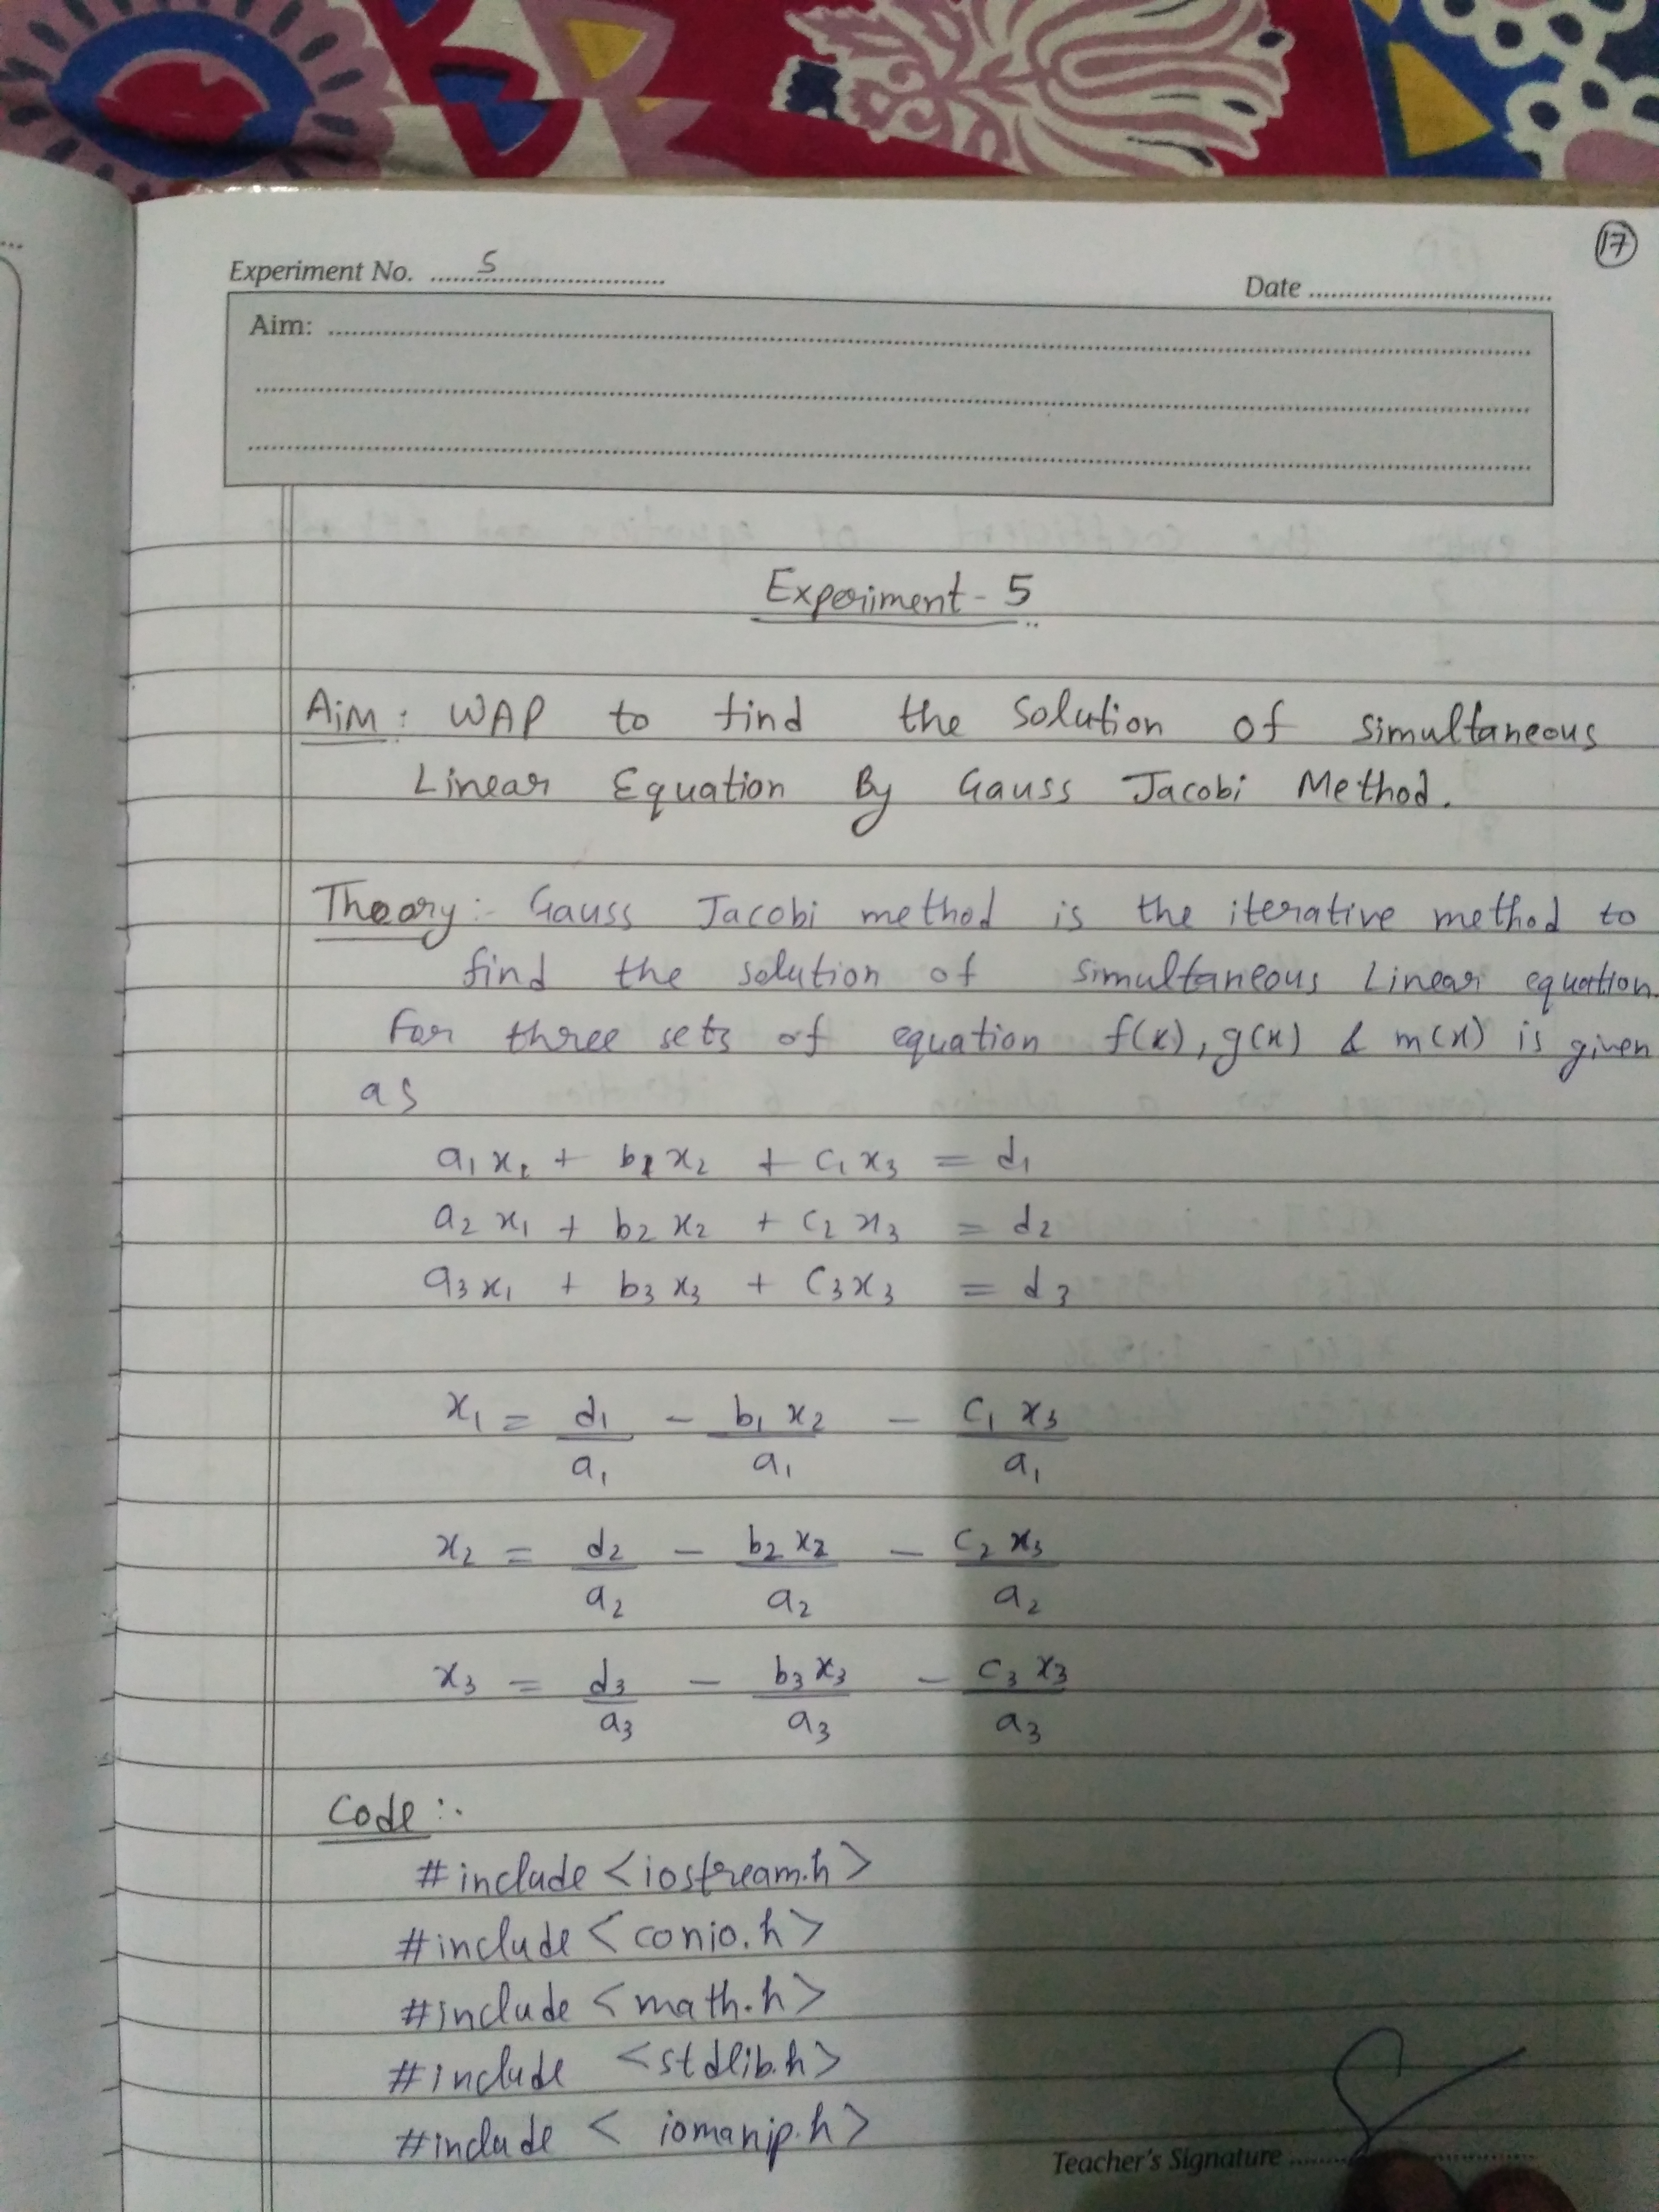 17
Experiment No. 5
Date
Aim:
Experiment - 5
Aim: WAP to find the solution of simultaneous
Linear Equation By Gauss Jacobi Method.
Theory:- Gauss Jacobi method is the iterative method to
find the solution of simultaneous Linear equation.
For three sets of equation f(x), g(x) & m(x) is given
as
a1 x1 + b1 x2 + c1 x3 = d1
a2 x1 + b2 x2 + c2 x3 = d2
a3 x1 + b3 x3 + c3 x3 = d3
x1 = d1/a1 - b1 x2/a1 - c1 x3/a1
x2 = d2/a2 - b2 x2/a2 - c2 x3/a2
x3 = d3/a3 - b3 x3/a3 - c3 x3/a3
Code :-
#include <iostream.h>
#include <conio.h>
#include <math.h>
#include <stdlib.h>
#include < iomanip.h>
Teacher's Signature